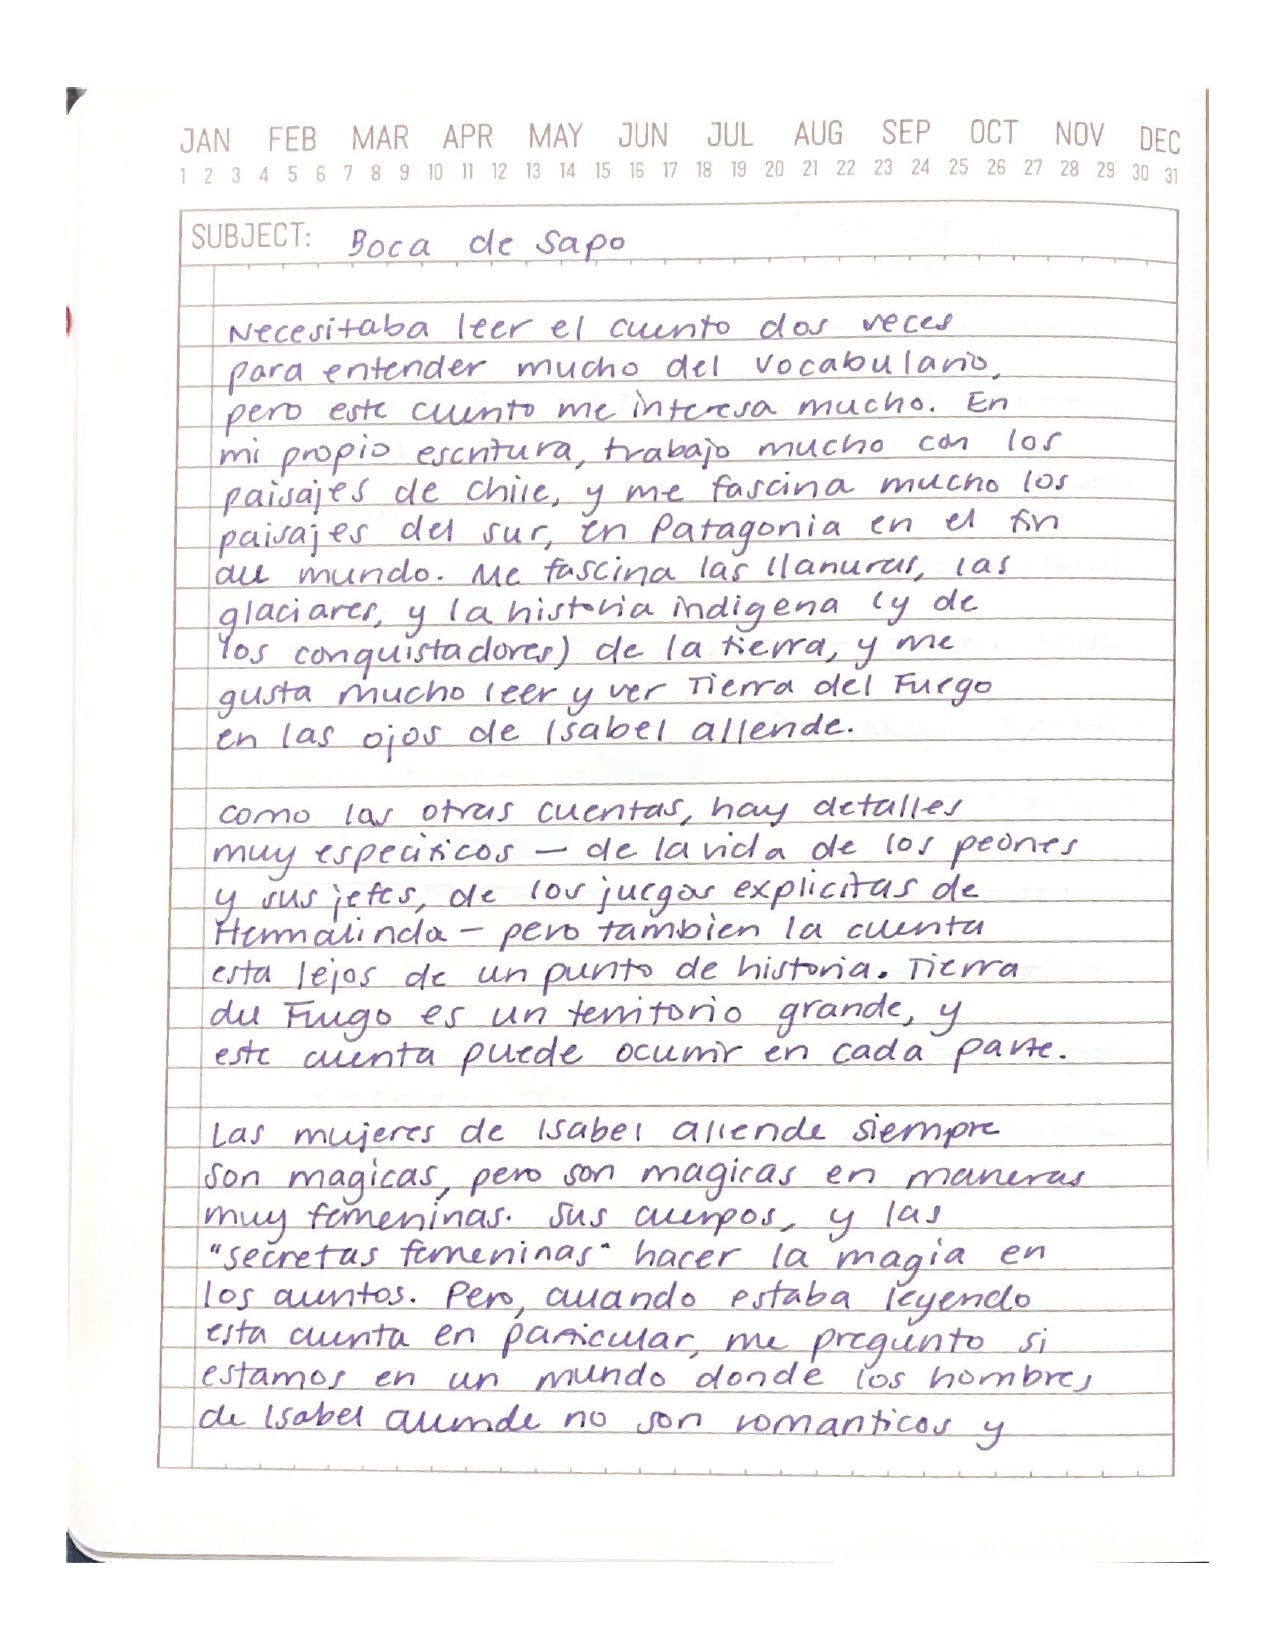 JAN FEB MAR APR MAY JUN JUL AUG SEP OCT NOV DEC
1 2 3 4 5 6 7 8 9 10 11 12 13 14 15 16 17 18 19 20 21 22 23 24 25 26 27 28 29 30 31
SUBJECT: Boca de Sapo
Necesitaba leer el cuento dos veces
para entender mucho del vocabulario,
pero este cuento me interesa mucho. En
mi propio escritura, trabajo mucho con los
paisajes de Chile, y me fascina mucho los
paisajes del sur, en Patagonia en el fin
del mundo. Me fascina las llanuras, las
glaciares, y la historia indigena (y de
los conquistadores) de la tierra, y me
gusta mucho leer y ver Tierra del Fuego
en las ojos de Isabel allende.
como las otras cuentas, hay detalles
muy especificos — de la vida de los peones
y sus jefes, de los juegos explicitas de
Hermalinda – pero tambien la cuenta
esta lejos de un punto de historia. Tierra
del Fuego es un territorio grande, y
este cuenta puede ocurrir en cada parte.
Las mujeres de Isabel allende siempre
son magicas, pero son magicas en maneras
muy femeninas. Sus cuerpos, y las
"secretas femeninas" hacer la magia en
los cuentos. Pero, cuando estaba leyendo
esta cuenta en particular, me pregunto si
estamos en un mundo donde los hombres
de Isabel allende no son romanticos y